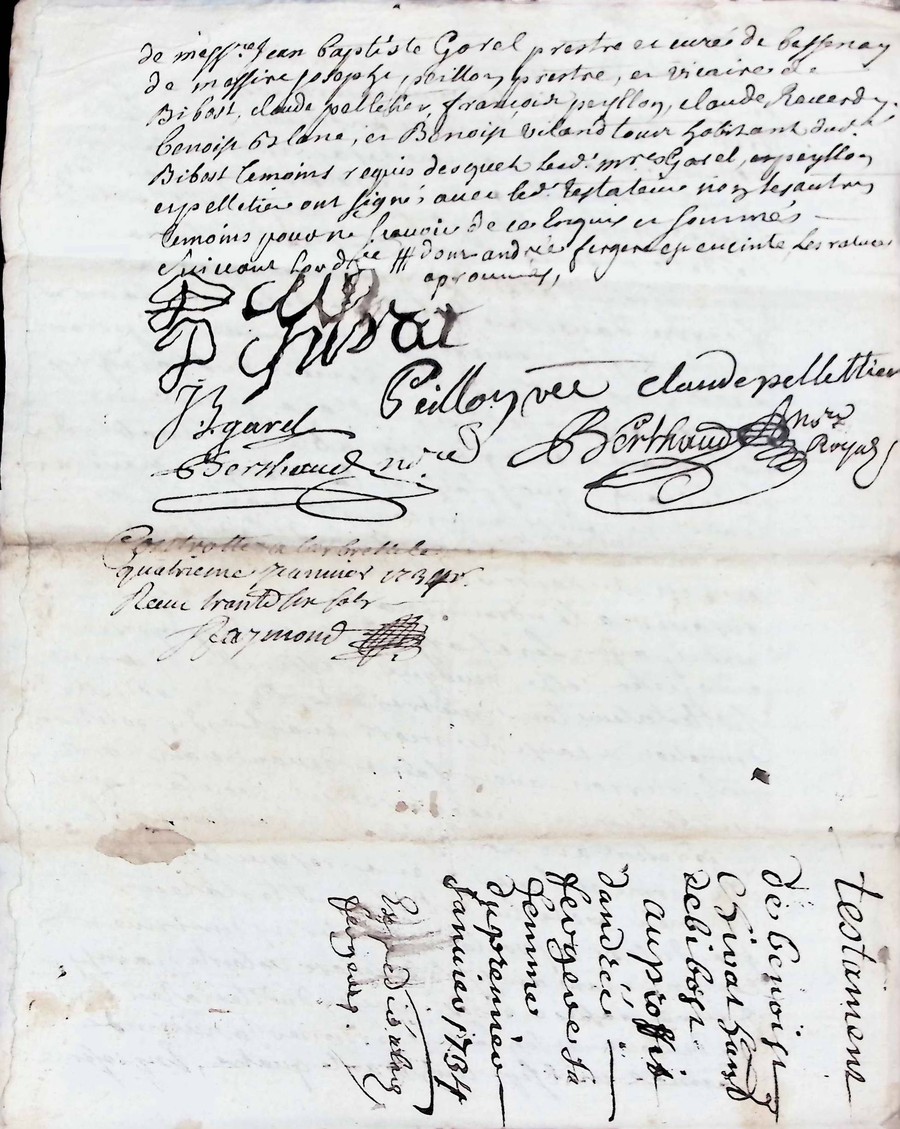 de messire Jean baptiste Gorel prestre et curé de bessenay
de messire Josephe peillon prestre, et vicaire de
Bibost, claude pelletier, françois peyllon, claude Reverdy
benoist blanc, et Benoist viland tous habitant dud.
Bibost temoins requis desquels lesd. mres Gorel, et peyllon
et pelletier ont signés avec led. testateur non les autres
temoins pour ne sçavoir de ce enquis et sommés
suivant lord /// dont andrée fergere est enceinte les ratures
aprouvées,
Peillon vic claude pellettier
JB gorel
Berthaud nore
Berthaud nore
Royal
Controllé a larbresle le
quatrieme Janvier 1734
Receu trante six sols
Raymond
testament
de benoist
Chivat
de bibost
au proffit
dandrée
fergere sa
femme
du premier
Janvier 1734
Expedié
fergere